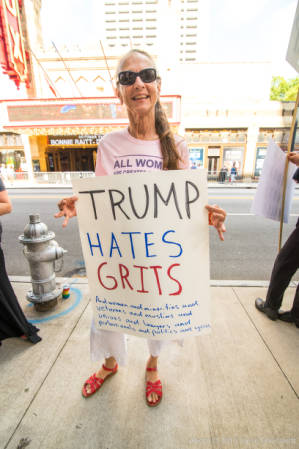 BONNIE RAITT
ALL WOM
TRUMP
HATES
GRITS
And women and minorities and
veterans and muslims and
unions and lawyers and
professionals and politics and